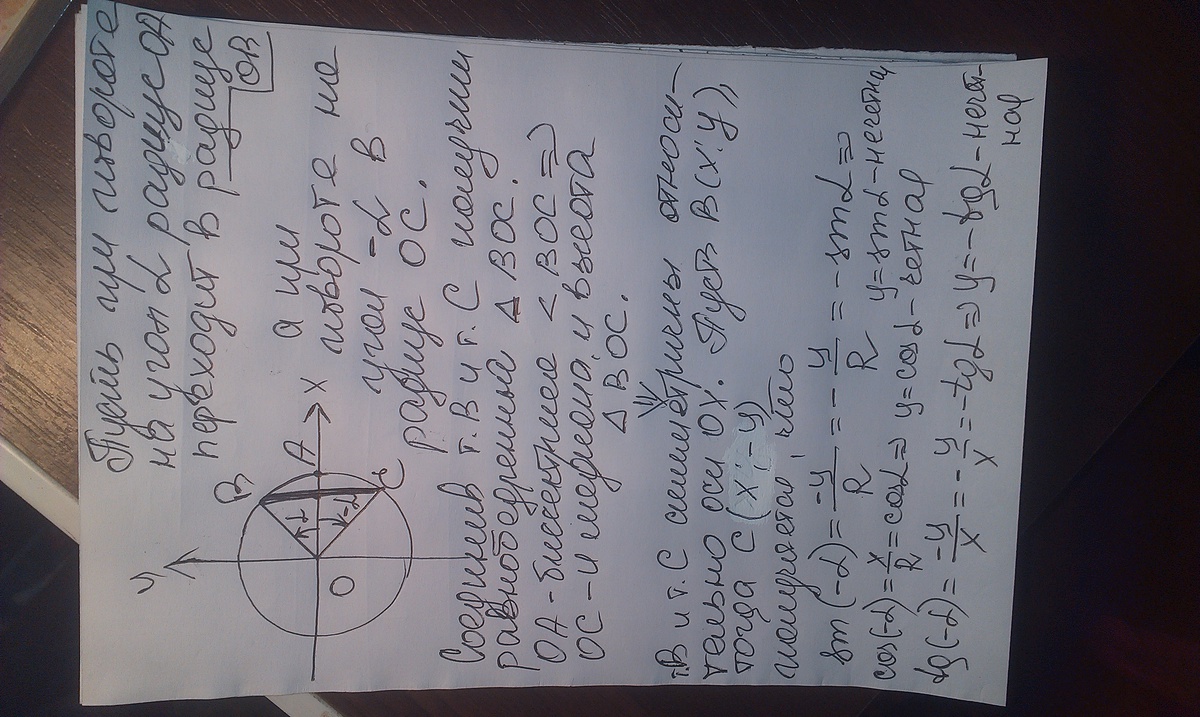 Пусть при повороте
на угол α радиус OA
переходит в радиус
OB
а при
повороте на
угол -α в
радиус OC.
y
B
A
X
α
-α
O
C
Соединив т. B и т. C получим
равнобедренный Δ BOC.
OA - биссектриса < BOC ⇒
OC - и медиана и высота
Δ BOC.
⇓
т.B и т.C симметричны относи-
тельно оси OX. Пусть B(X; Y),
тогда C (X; -Y)
получается, что
sin (-α) = -y/R = - y/R = - sin α ⇒
y = sin α - нечетная
cos (-α) = x/R = cos α ⇒ y = cos α - четная
tg (-α) = -y/x = - y/x = - tg α ⇒ y = - tg α - нечёт-
ная